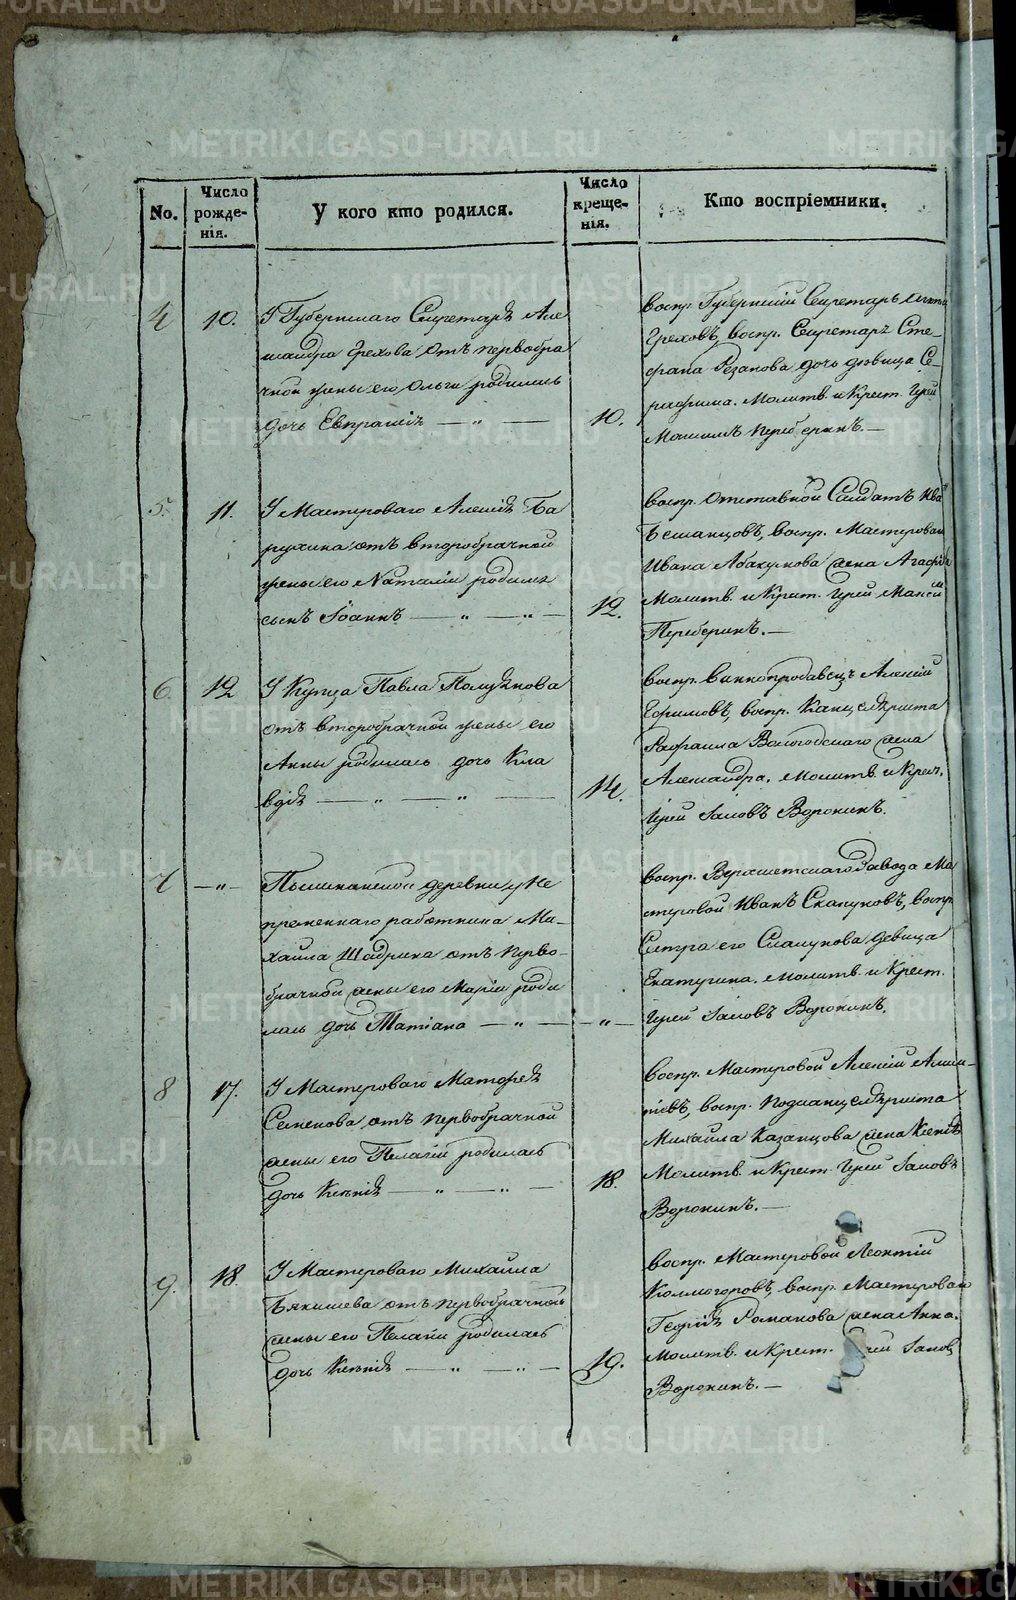 METRIKI.GASO-URAL.RU
No.
Число рожденія.
У кого кто родился.
Число крещенія.
Кто воспріемники.
4
10.
У Губернскаго Секретаря Але
ксандра Грехова отъ первобра
чной жены его Ольги родилась
дочь Евпраксія — „ —
10.
воспр. Губернскій Секретарь
Греховъ, воспр. Секретаря Сте-
фана Резанова дочь девица Се-
рафима. Молитв. и Крест. Іерей
Максимъ Переберинъ. —
5.
11.
У Мастероваго Алексѣя Ба
рухина отъ второбрачной
жены его Наталіи родился
сынъ Іоаннъ — „ — „ —
12.
воспр. отставной Салдатъ Ива
воспр. Мастероваго
Ивана Абакумова жена Агафія
Молитв. и Крест. Іерей Максим
Переберинъ. —
6.
12
У Купца Павла Полузнова
отъ второбрачной жены его
Анны родилась дочь Кла
вдія — „ — „ —
14.
воспр. виннопродавецъ Алексій
Ефимовъ, воспр. Канцеляриста
Рафаила Вологодскаго жена
Александра, молитв. и Крест.
Іерей Іаковъ Воронинъ.
7
— „ —
Пышминской деревни у Не
пременнаго работника Ми-
хаила Шадрина отъ перво-
брачной жены его Маріи роди
лась дочь Татіана — „ — „ —
воспр. Верхисетскаго Завода Ма
стеровой Иванъ Скакуновъ, воспр.
Сестра его Скакунова девица
Екатерина, молитв. и Крест.
Іерей Іаковъ Воронинъ.
8
17.
У Мастероваго Матфея
Семенова отъ первобрачной
жены его Пелагіи родилась
дочь Ксенія — „ — „ —
18.
воспр. Мастеровой Алексій
воспр. Подканцеляриста
Михаила Казанцова жена Ксенія
Молитв. и Крест. Іерей Іаковъ
Воронинъ. —
9.
18.
У Мастероваго Михаила
Бякишева отъ первобрачной
жены его Пелагіи родилась
дочь Ксенія — „ — „ —
19.
воспр. Мастеровой Леонтій
Колмогоровъ, воспр. Мастероваго
Георгія Романова жена Анна.
Молитв. и Крест. Іерей Іаковъ
Воронинъ. —